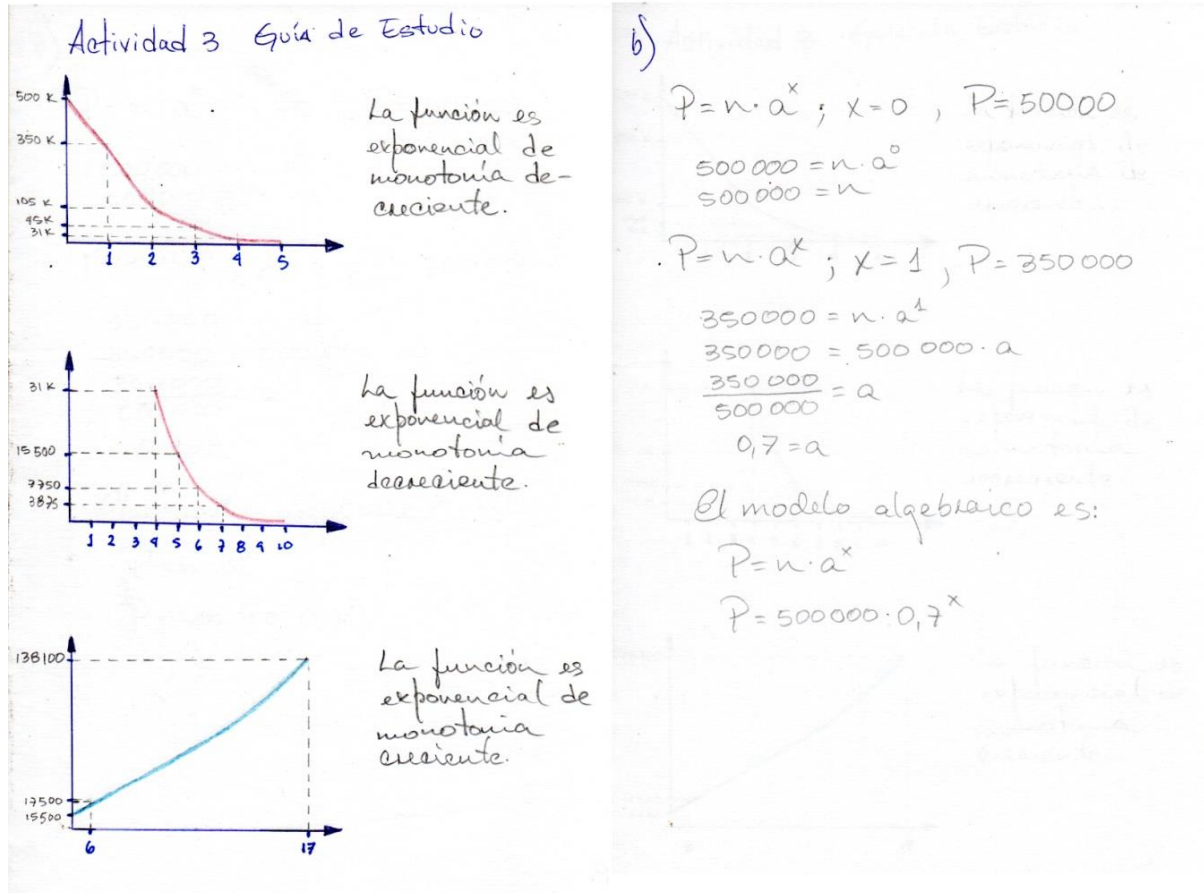 Actividad 3 Guía de Estudio
500 K
350 K
105 K
45K
31K
1 2 3 4 5
La función es
exponencial de
monotonía de-
creciente.
31K
15500
7750
3875
1 2 3 4 5 6 7 8 9 10
La función es
exponencial de
monotonía
decreciente.
138100
17500
15500
6 17
La función es
exponencial de
monotonía
creciente.
b)
P=n·a^x ; x=0 , P=50000
500 000 = n·a^0
500 000 = n
P=n·a^x ; x=1 , P=350 000
350000 = n·a^1
350 000 = 500 000·a
350 000
500 000
= a
0,7=a
El modelo algebraico es:
P=n·a^x
P=500000·0,7^x